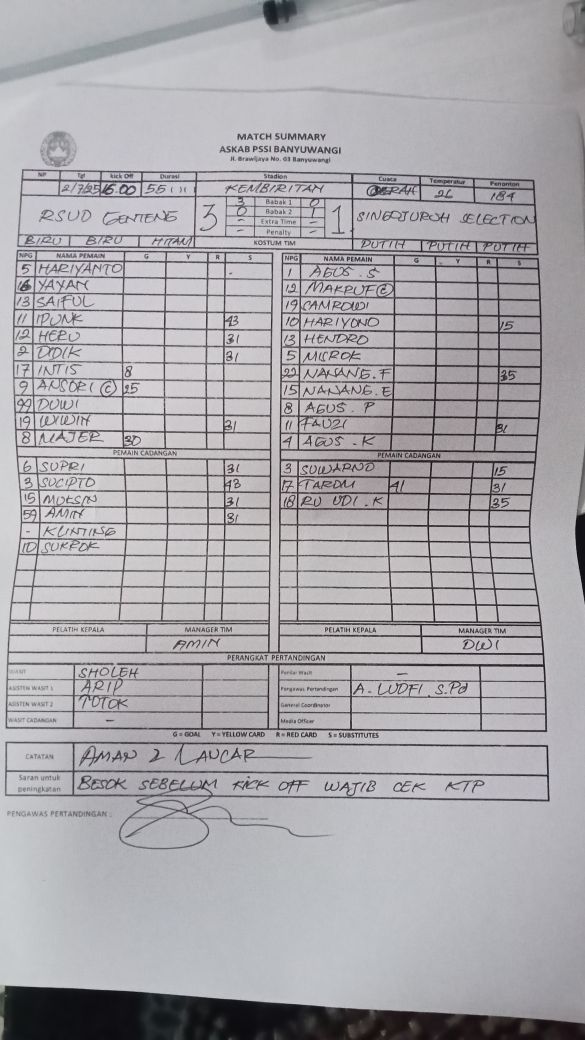 MATCH SUMMARY
ASKAB PSSI BANYUWANGI
Jl. Brawijaya No. 03 Banyuwangi
NP Tgl kick Off Durasi Stadion Cuaca Temperatur Penonton
2/7/25 16.00 55 KEMBIRITAN CERAH 26 184
RSUD GENTENG 3 3 Babak 1 0 1 SINGOJUROH SELECTION
0 Babak 2 1
- Extra Time -
- Penalty -
BIRU BIRU HITAM KOSTUM TIM PUTIH PUTIH PUTIH
NPG NAMA PEMAIN G Y R S NPG NAMA PEMAIN G Y R S
5 HARIYANTO 1 AGUS . S
16 YAYAN 12 MAKRUF (C)
13 SAIFUL 19 CAMROWI
11 IPUNK 43 10 HARIYONO 15
12 HERU 31 13 HENDRO
2 DIDIK 31 5 MISROK
17 INTIS 8 22 NANANG.F 35
9 ANSORI (C) 25 15 NANANG.E
99 DUWI 8 AGUS . P
19 WIWIN 31 11 FAUZI 31
8 MAJER 30 4 AGUS . K
PEMAIN CADANGAN PEMAIN CADANGAN
6 SUPRI 31 3 SUWARNO 15
3 SUCIPTO 43 17 41 31
15 MUKSIN 31 18 RUDI . K 35
59 AMIN 31
- KLINTING
10 SUKROK
PELATIH KEPALA MANAGER TIM PELATIH KEPALA MANAGER TIM
AMIN DWI
PERANGKAT PERTANDINGAN
WASIT SHOLEH Penilai Wasit -
ASISTEN WASIT 1 ARIP Pengawas Pertandingan A. LUDFI S.Pd
ASISTEN WASIT 2 TOTOK General Coordinator
WASIT CADANGAN - Media Officer
G = GOAL Y = YELLOW CARD R = RED CARD S = SUBSTITUTES
CATATAN AMAN 2 LANCAR
Saran untuk peningkatan BESOK SEBELUM KICK OFF WAJIB CEK KTP
PENGAWAS PERTANDINGAN :